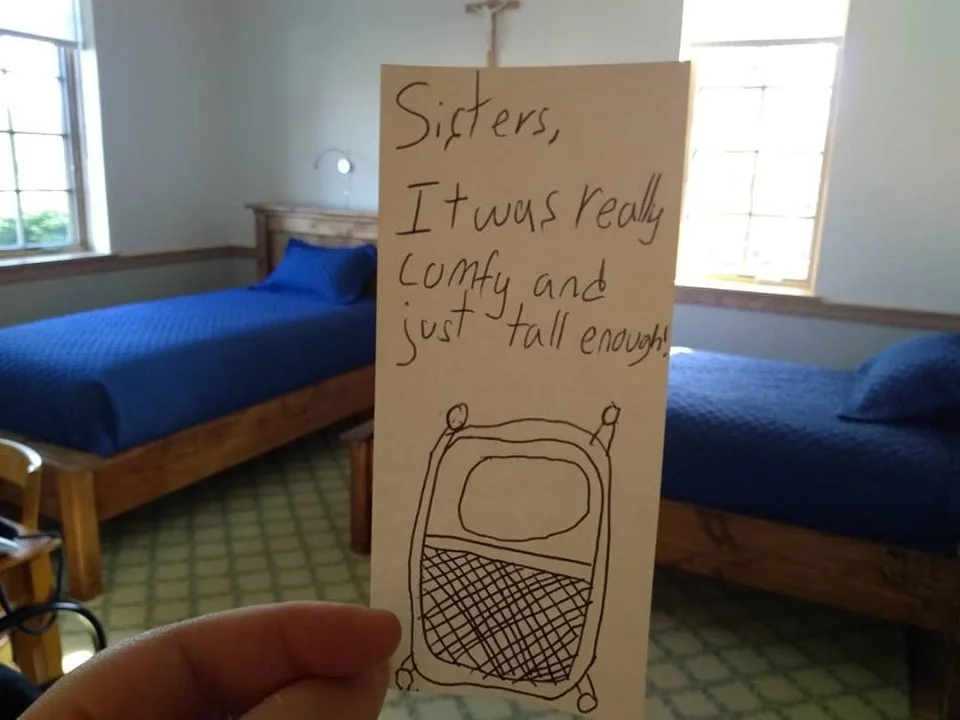 Sisters,
It was really
comfy and
just tall enough!